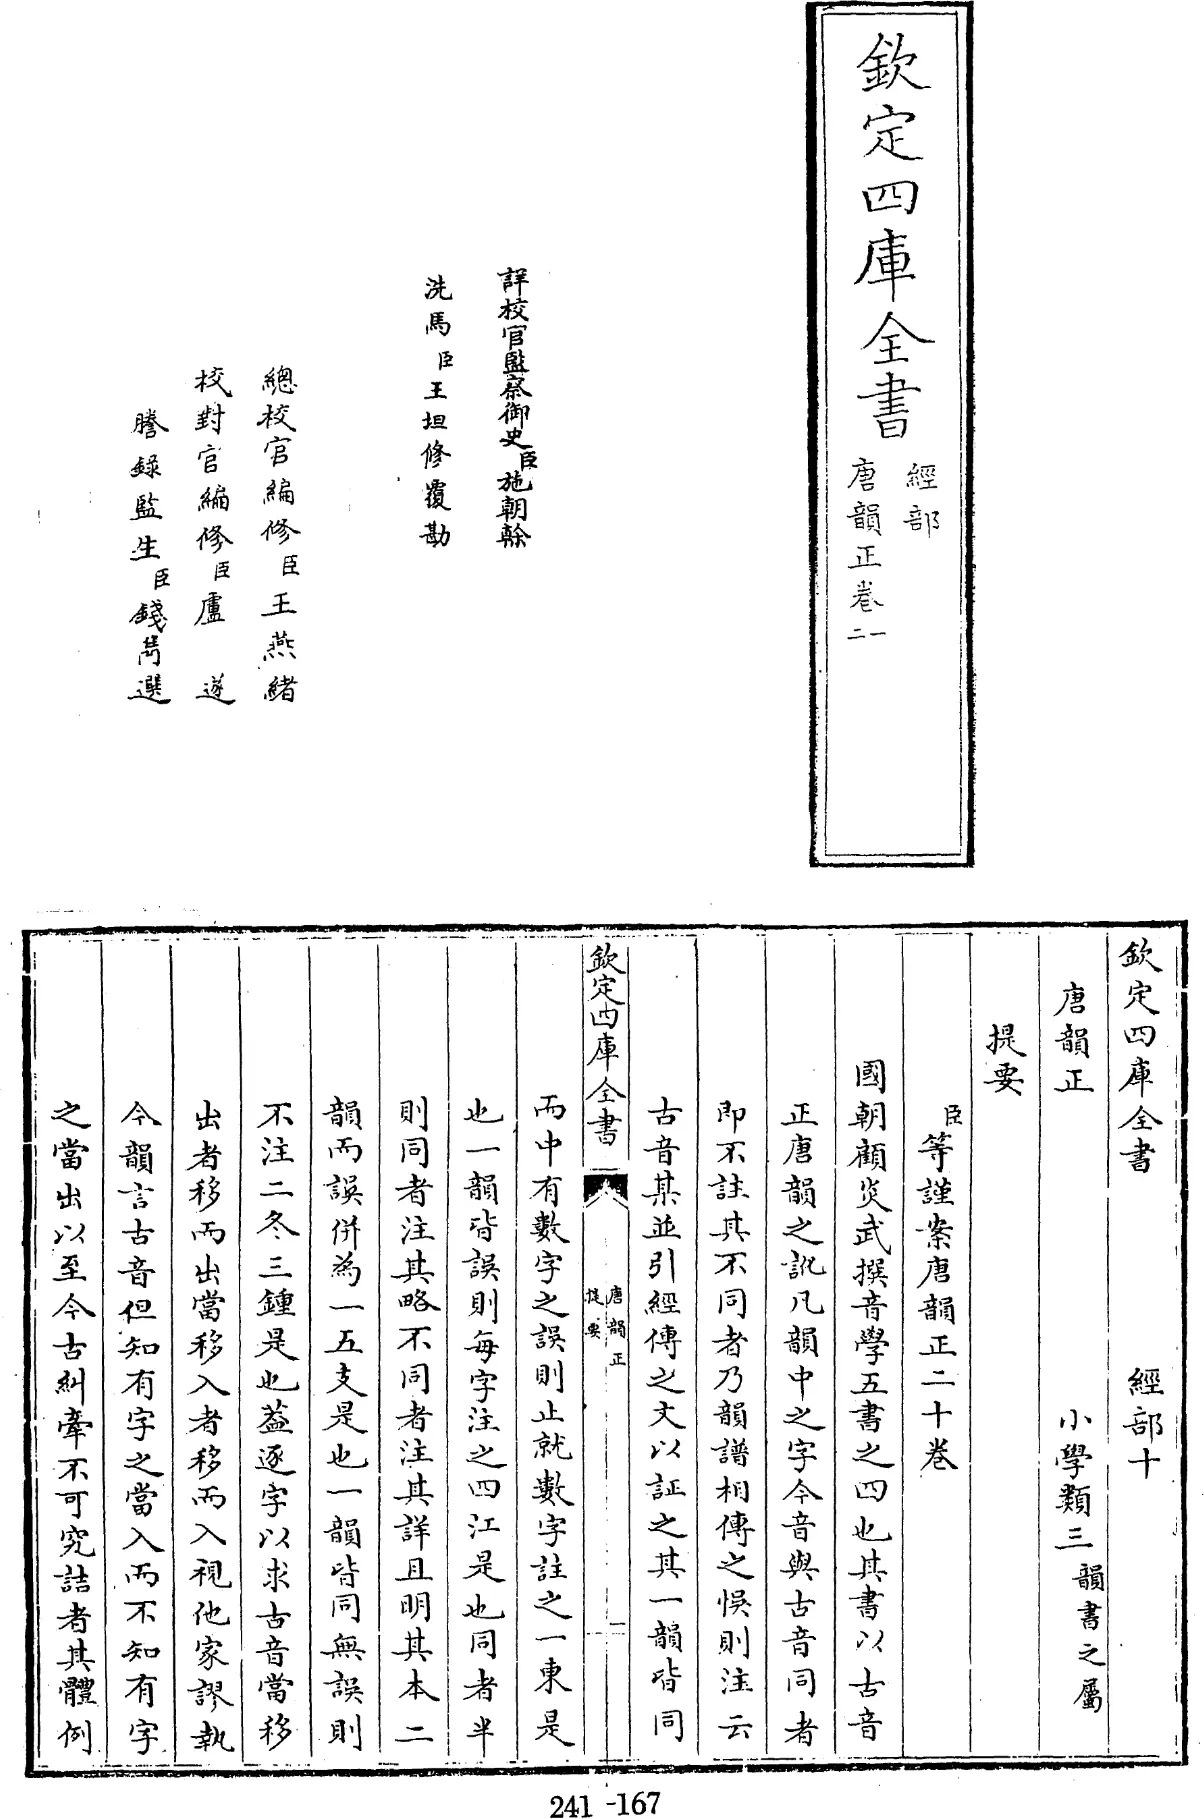 欽定四庫全書
經部
唐韻正卷一二
詳校官監察御史臣施朝榦
洗馬臣王坦修覆勘
總校官編修臣王燕緒
校對官編修臣盧遂
謄錄監生臣錢選
欽定四庫全書 經部十
唐韻正 小學類三韻書之屬
提要
臣等謹案唐韻正二十卷
國朝顧炎武撰音學五書之四也其書以古音
正唐韻之訛凡韻中之字今音與古音同者
即不註其不同者乃韻譜相傳之悞則注云
古音某並引經傳之文以証之其一韻皆同
欽定四庫全書
唐韻正
提要
一
而中有數字之誤則止就數字註之一東是
也一韻皆誤則每字注之四江是也同者半
則同者注其略不同者注其詳且明其本二
韻而誤併為一五支是也一韻皆同無誤則
不注二冬三鍾是也蓋逐字以求古音當移
出者移而出當移入者移而入視他家謬執
今韻言古音但知有字之當入而不知有字
之當出以至今古糾牽不可究詰者其體例
241-167